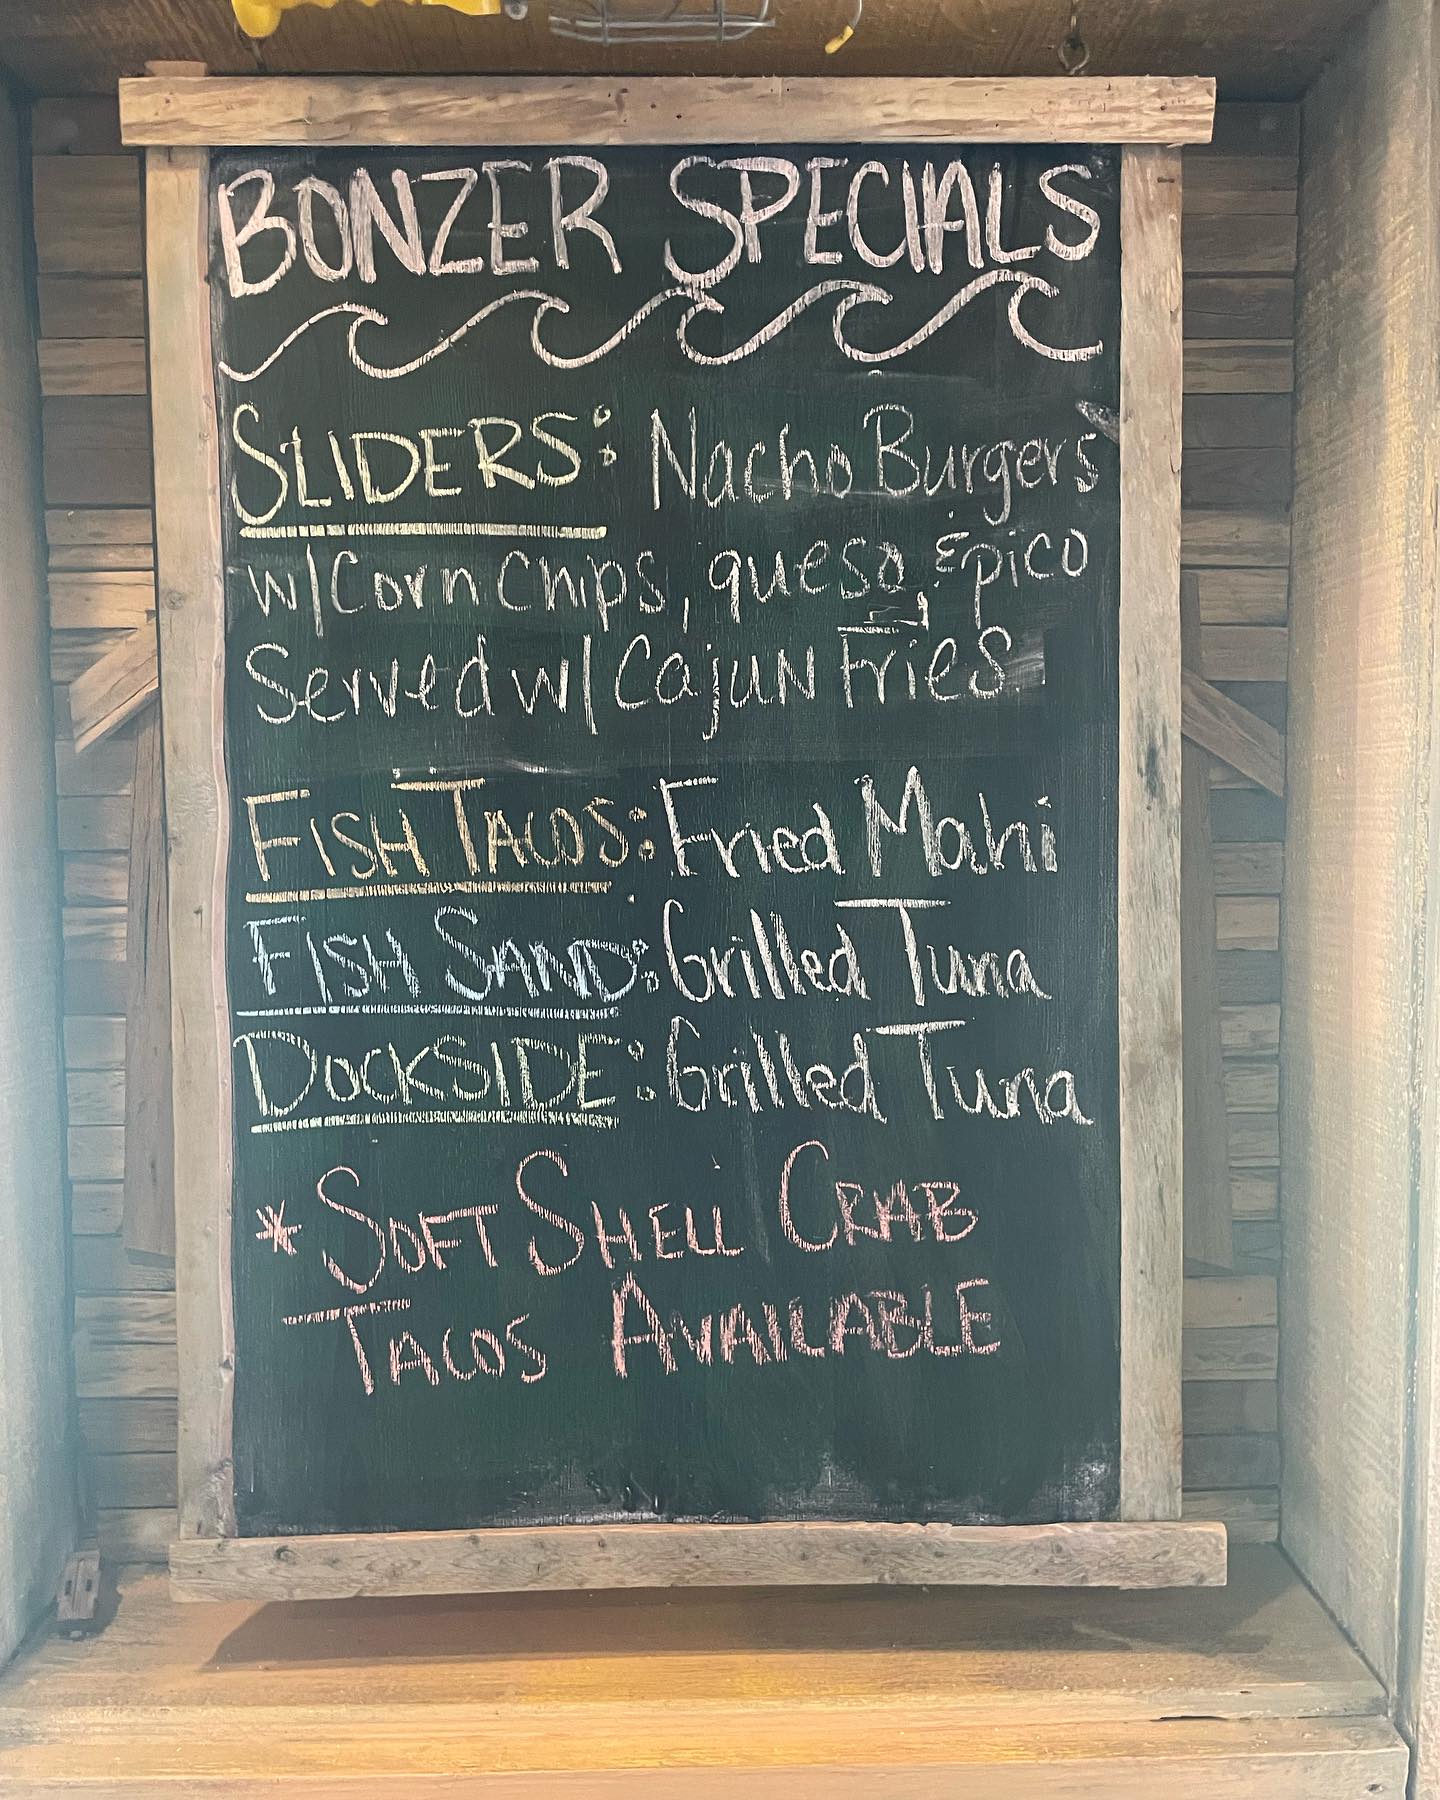 BONZER SPECIALS
SLIDERS: Nacho Burgers
w/Corn Chips, queso, & pico
Served w/ Cajun Fries.
FISH TACOS: Fried Mahi
FISH SAND: Grilled Tuna
DOCKSIDE: Grilled Tuna
* SOFT SHELL CRAB
TACOS AVAILABLE